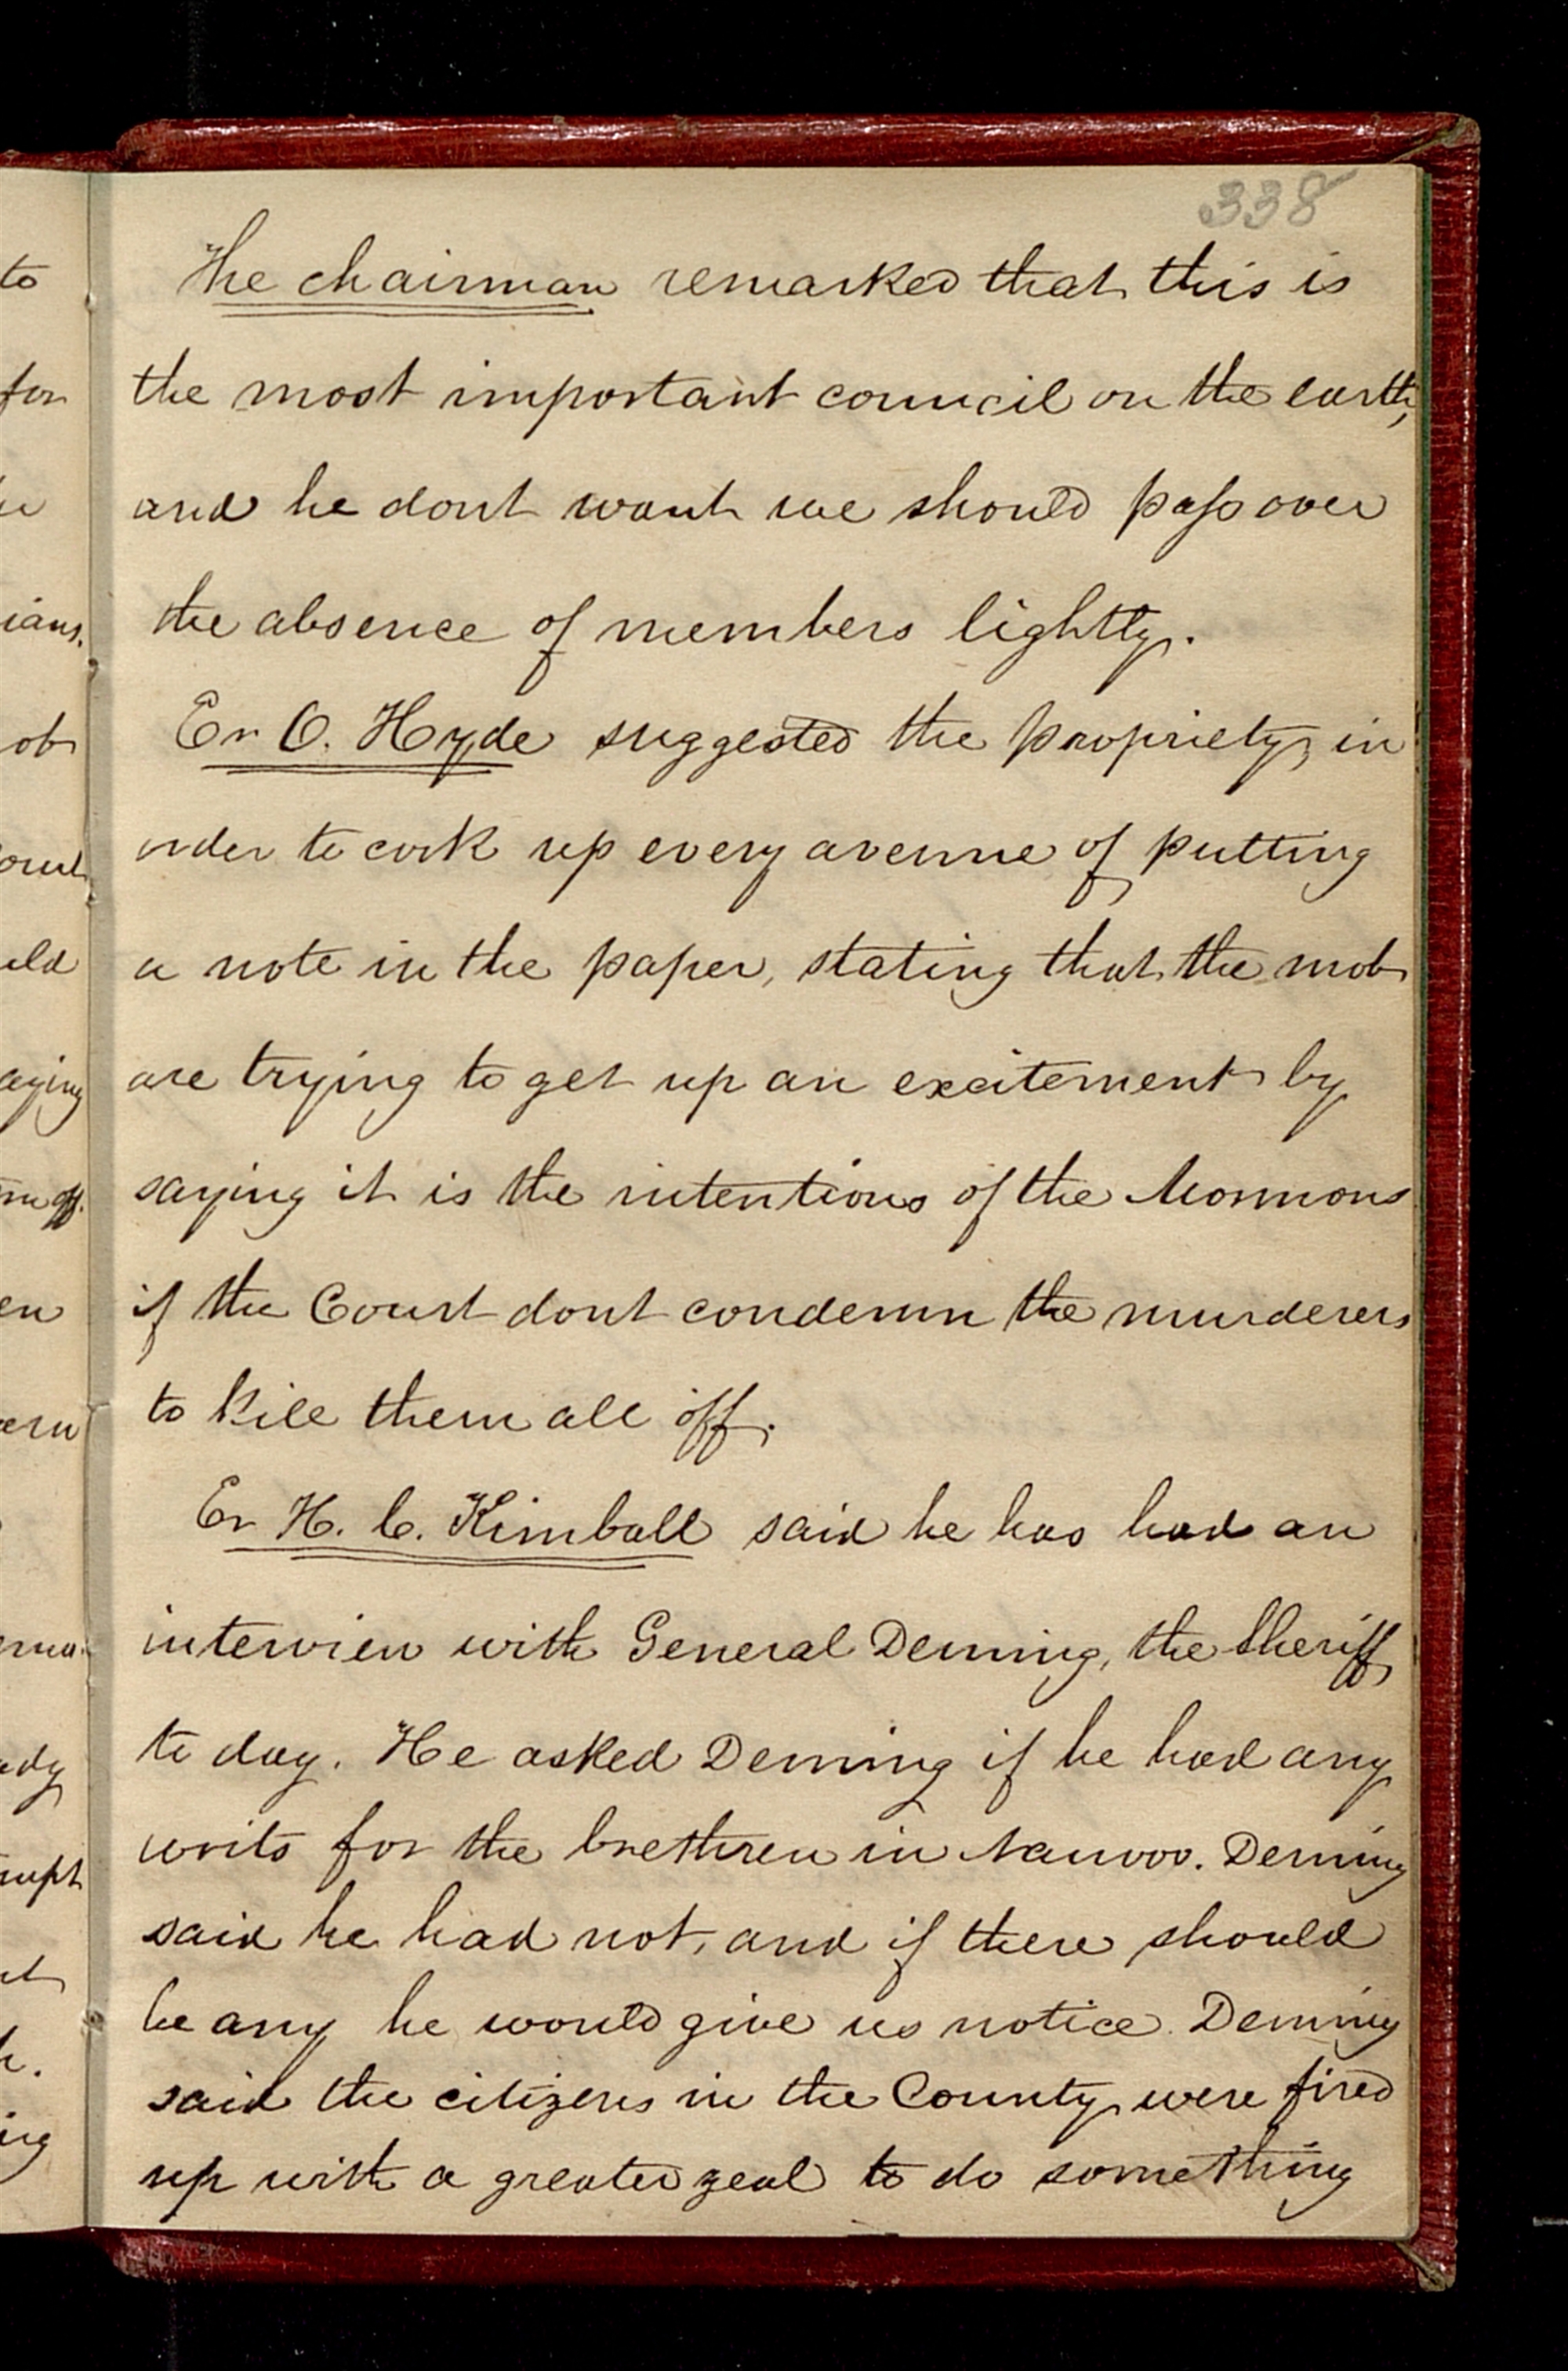 338
The chairman remarked that this is
the most important council on the earth,
and he dont want we should pass over
the absence of members lightly.
Er O. Hyde suggested the propriety, in
order to cork up every avenue of putting
a note in the paper, stating that the mob
are trying to get up an excitement by
saying it is the intentions of the Mormons
if the Court dont condemn the murderers
to kill them all off.
Er H. C. Kimball said he has had an
interview with General Deming, the Sheriff
to day. He asked Deming if he had any
writs for the brethren in Nauvoo. Deming
said he had not, and if there should
be any he would give us notice. Deming
said the citizens in the County were fired
up with a greater zeal to do something